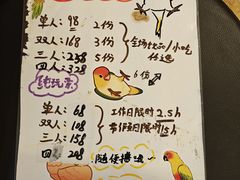 单人: 98 2份
双人: 168 3份
三人: 238 5份
四人: 328 6份
全场饮品/小吃
任选
纯玩票
单人: 68
双人: 108
三人: 158
四 228
工作日限时 2.5h
节假日限时 1.5h
随便撸